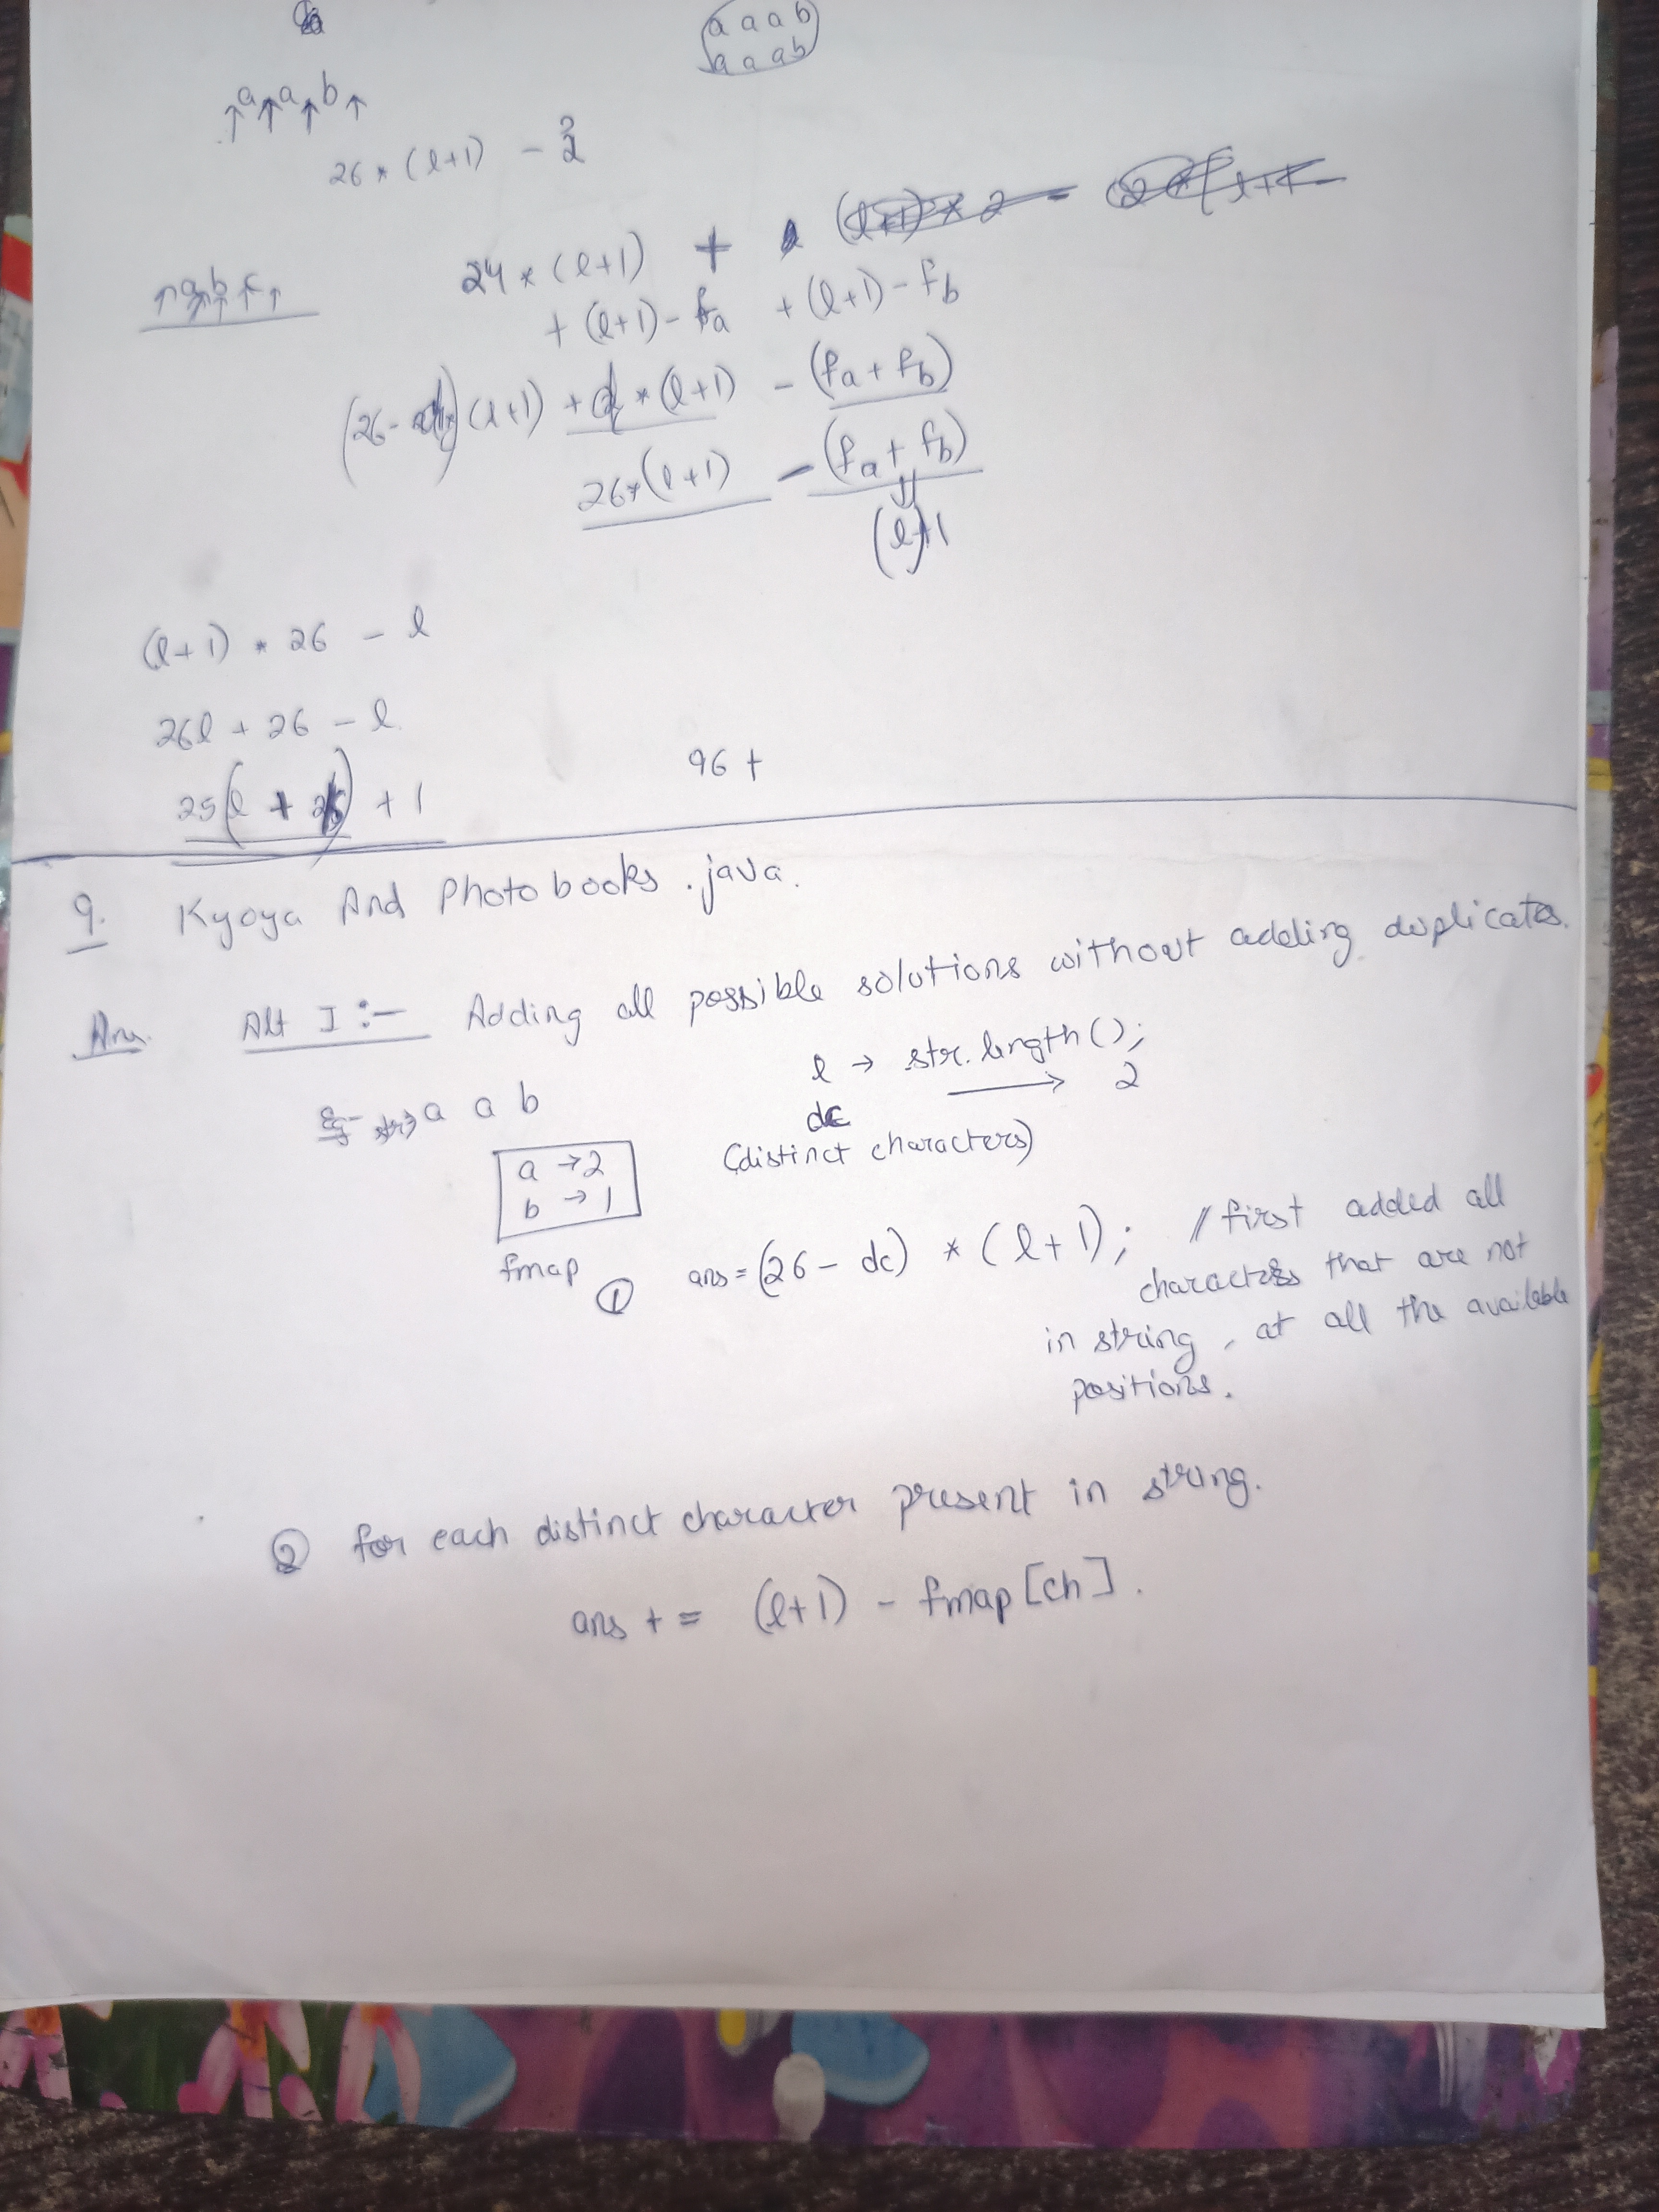 a a a b
a a a b
↑a↑a↑b↑
26 * (l+1) -
24 * (l+1) +
+ (l+1) - fa + (l+1) - fb
↑a↑b↑c↑
(26 - ) (l+1) + * (l+1) - (fa + fb)
26*(l+1) - (fa + fb)
(l)
(l+1) * 26 - l
26l + 26 - l
25(l + ) + 1
96 +
9. Kyoya And Photobooks.java.
Ans. Alt I :- Adding all possible solutions without adding duplicates.
l → str.length();
Eg- a a b
dc → 2
(distinct characters)
a → 2
b → 1
fmap
① ans = (26 - dc) * (l+1); // first added all
characters that are not
in string, at all the available
positions.
② for each distinct character present in string.
ans += (l+1) - fmap[ch].